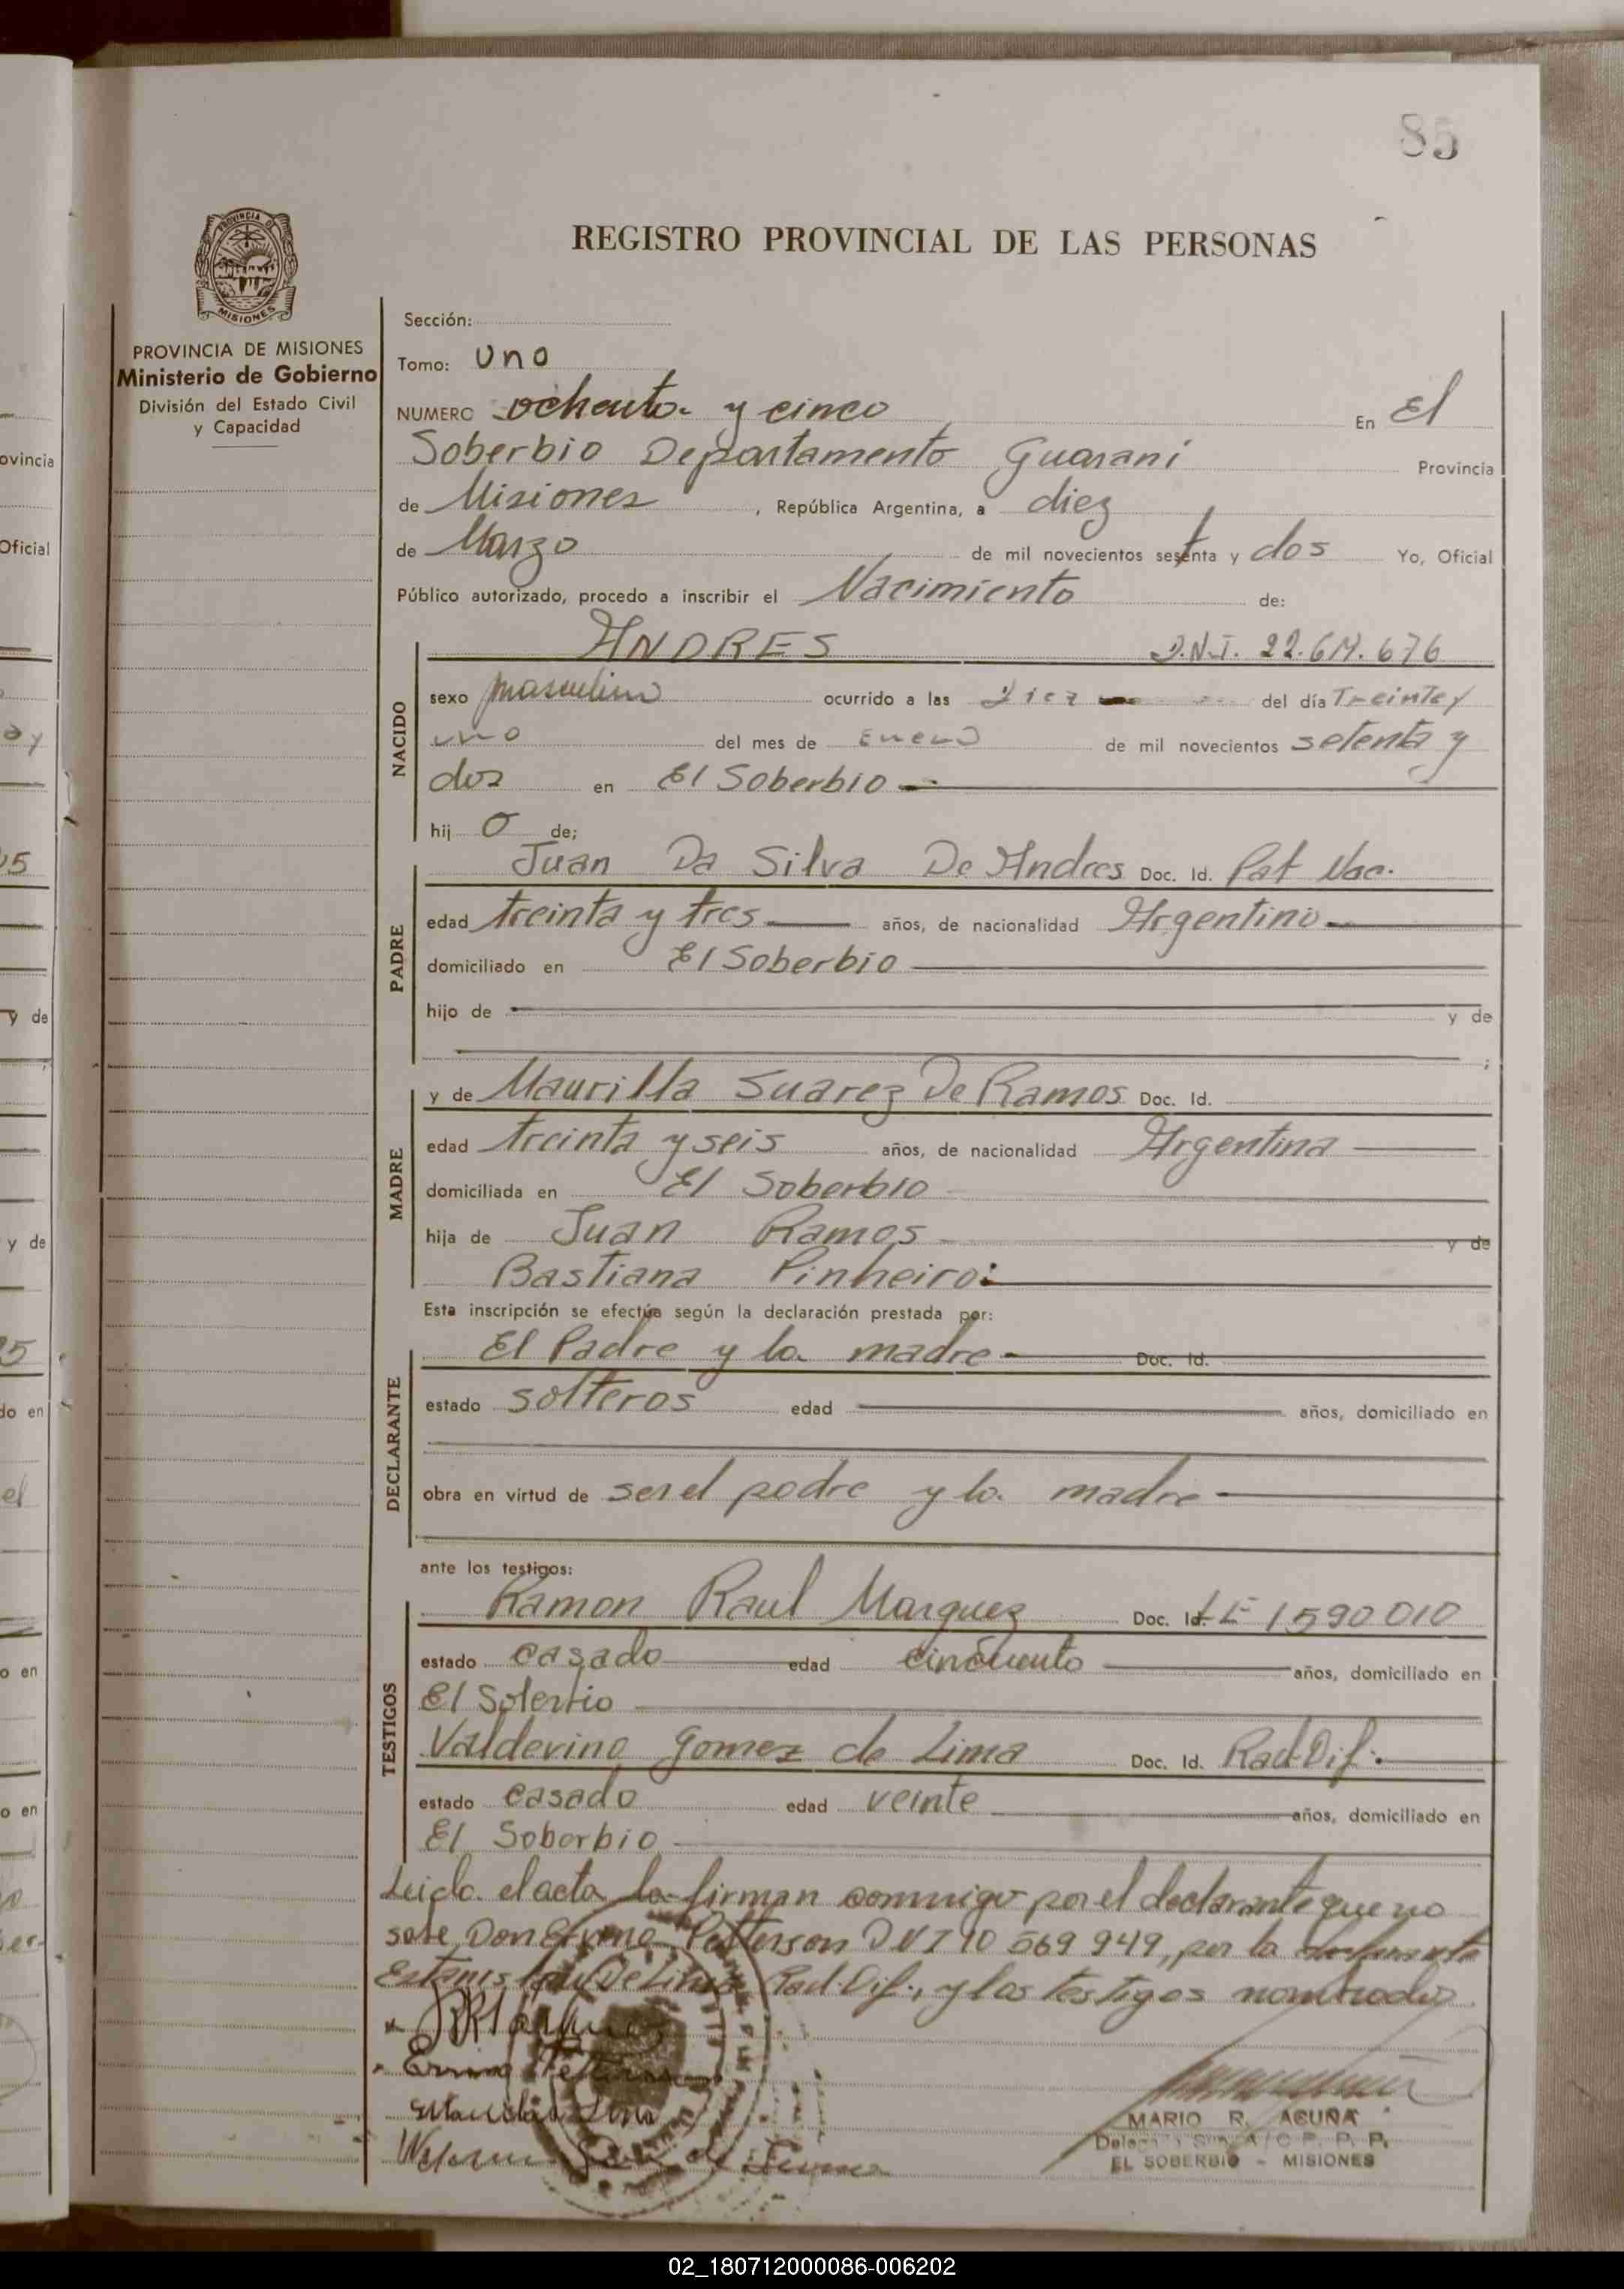 85
REGISTRO PROVINCIAL DE LAS PERSONAS
MISIONES
PROVINCIA DE MISIONES
Ministerio de Gobierno
División del Estado Civil
y Capacidad
Sección:
Tomo: Uno
NUMERO ochenta y cinco En El
Soberbio Departamento Guarani Provincia
de Misiones, República Argentina, a diez
de Marzo de mil novecientos sesenta y dos Yo, Oficial
Público autorizado, procedo a inscribir el Nacimiento de:
ANDRES D.N.I.
NACIDO
sexo masculino ocurrido a las Diez del día Treinta y
uno del mes de Enero de mil novecientos setenta y
dos en El Soberbio
hij o de;
PADRE
Juan Da Silva De Andres Doc. Id. Pat Nac.
edad treinta y tres años, de nacionalidad Argentino
domiciliado en El Soberbio
hijo de y de
;
MADRE
y de Maurilla Suarez De Ramos Doc. Id.
edad treinta y seis años, de nacionalidad Argentina
domiciliada en El Soberbio
hija de Juan Ramos y de
Bastiana Pinheiro:
Esta inscripción se efectúa según la declaración prestada por:
DECLARANTE
El Padre y la madre Doc. Id.
estado solteros edad años, domiciliado en
obra en virtud de ser el padre y la madre
ante los testigos:
TESTIGOS
Ramon Raul Marquez Doc. Id. LE 1590010
estado casado edad cincuenta años, domiciliado en
El Soberbio
Valdevino Gomez de Lima Doc. Id. Rad. Dif.
estado casado edad veinte años, domiciliado en
El Soberbio
Leida el acta la firman conmigo por el declarante que no
sabe Don Ervino Petterson DNI 10 569 949, por la
Estanislau De Lima Rad. Dif., y los testigos nombrados
MARIO R. ACUÑA
EL SOBERBIO - MISIONES
02_180712000086-006202